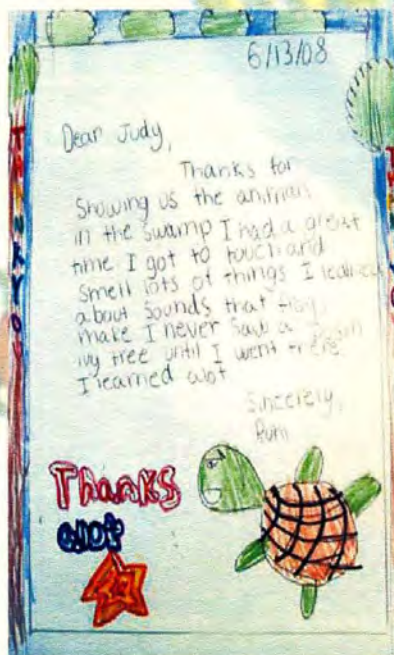 6/13/08
Dear Judy,
Thanks for
Showing us the animals
in the swamp I had a great
time I got to touch and
smell lots of things I learned
about sounds that frogs
make I never saw a
ivy tree until I went there.
I learned alot
Sincerely,
Thanks
alot
THANK YOU